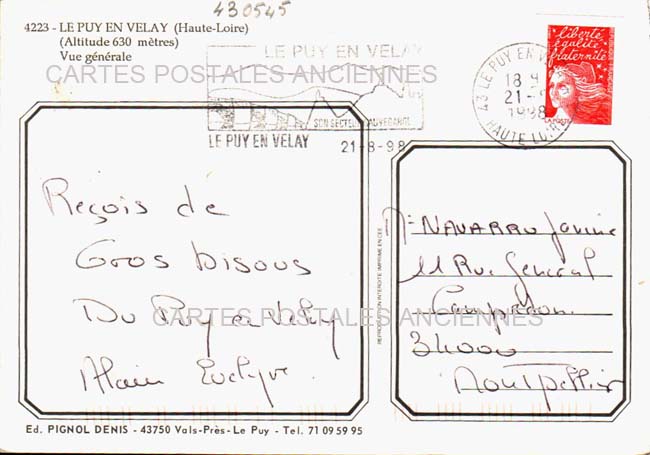 430545
4223 - LE PUY EN VELAY (Haute-Loire)
(Altitude 630 mètres)
Vue générale
LE PUY EN VELAY
SON SECTEUR SAUVEGARDÉ
LE PUY EN VELAY
21-8-98
43 LE PUY EN V
18 H
21-8
1998
HAUTE LOIRE
liberté
égalité
fraternité
LA POSTE
CARTES POSTALES ANCIENNES
Reçois de
Gros bisous
Du Puy en Velay
Alain Evelyne.
REPRODUCTION INTERDITE IMPRIME EN CEE
NAVARRO Janine
11 Rue General
34000
Montpellier
CARTES POSTALES ANCIENNES
Ed. PIGNOL DENIS - 43750 Vals-Près-Le Puy - Tel. 71 09 59 95